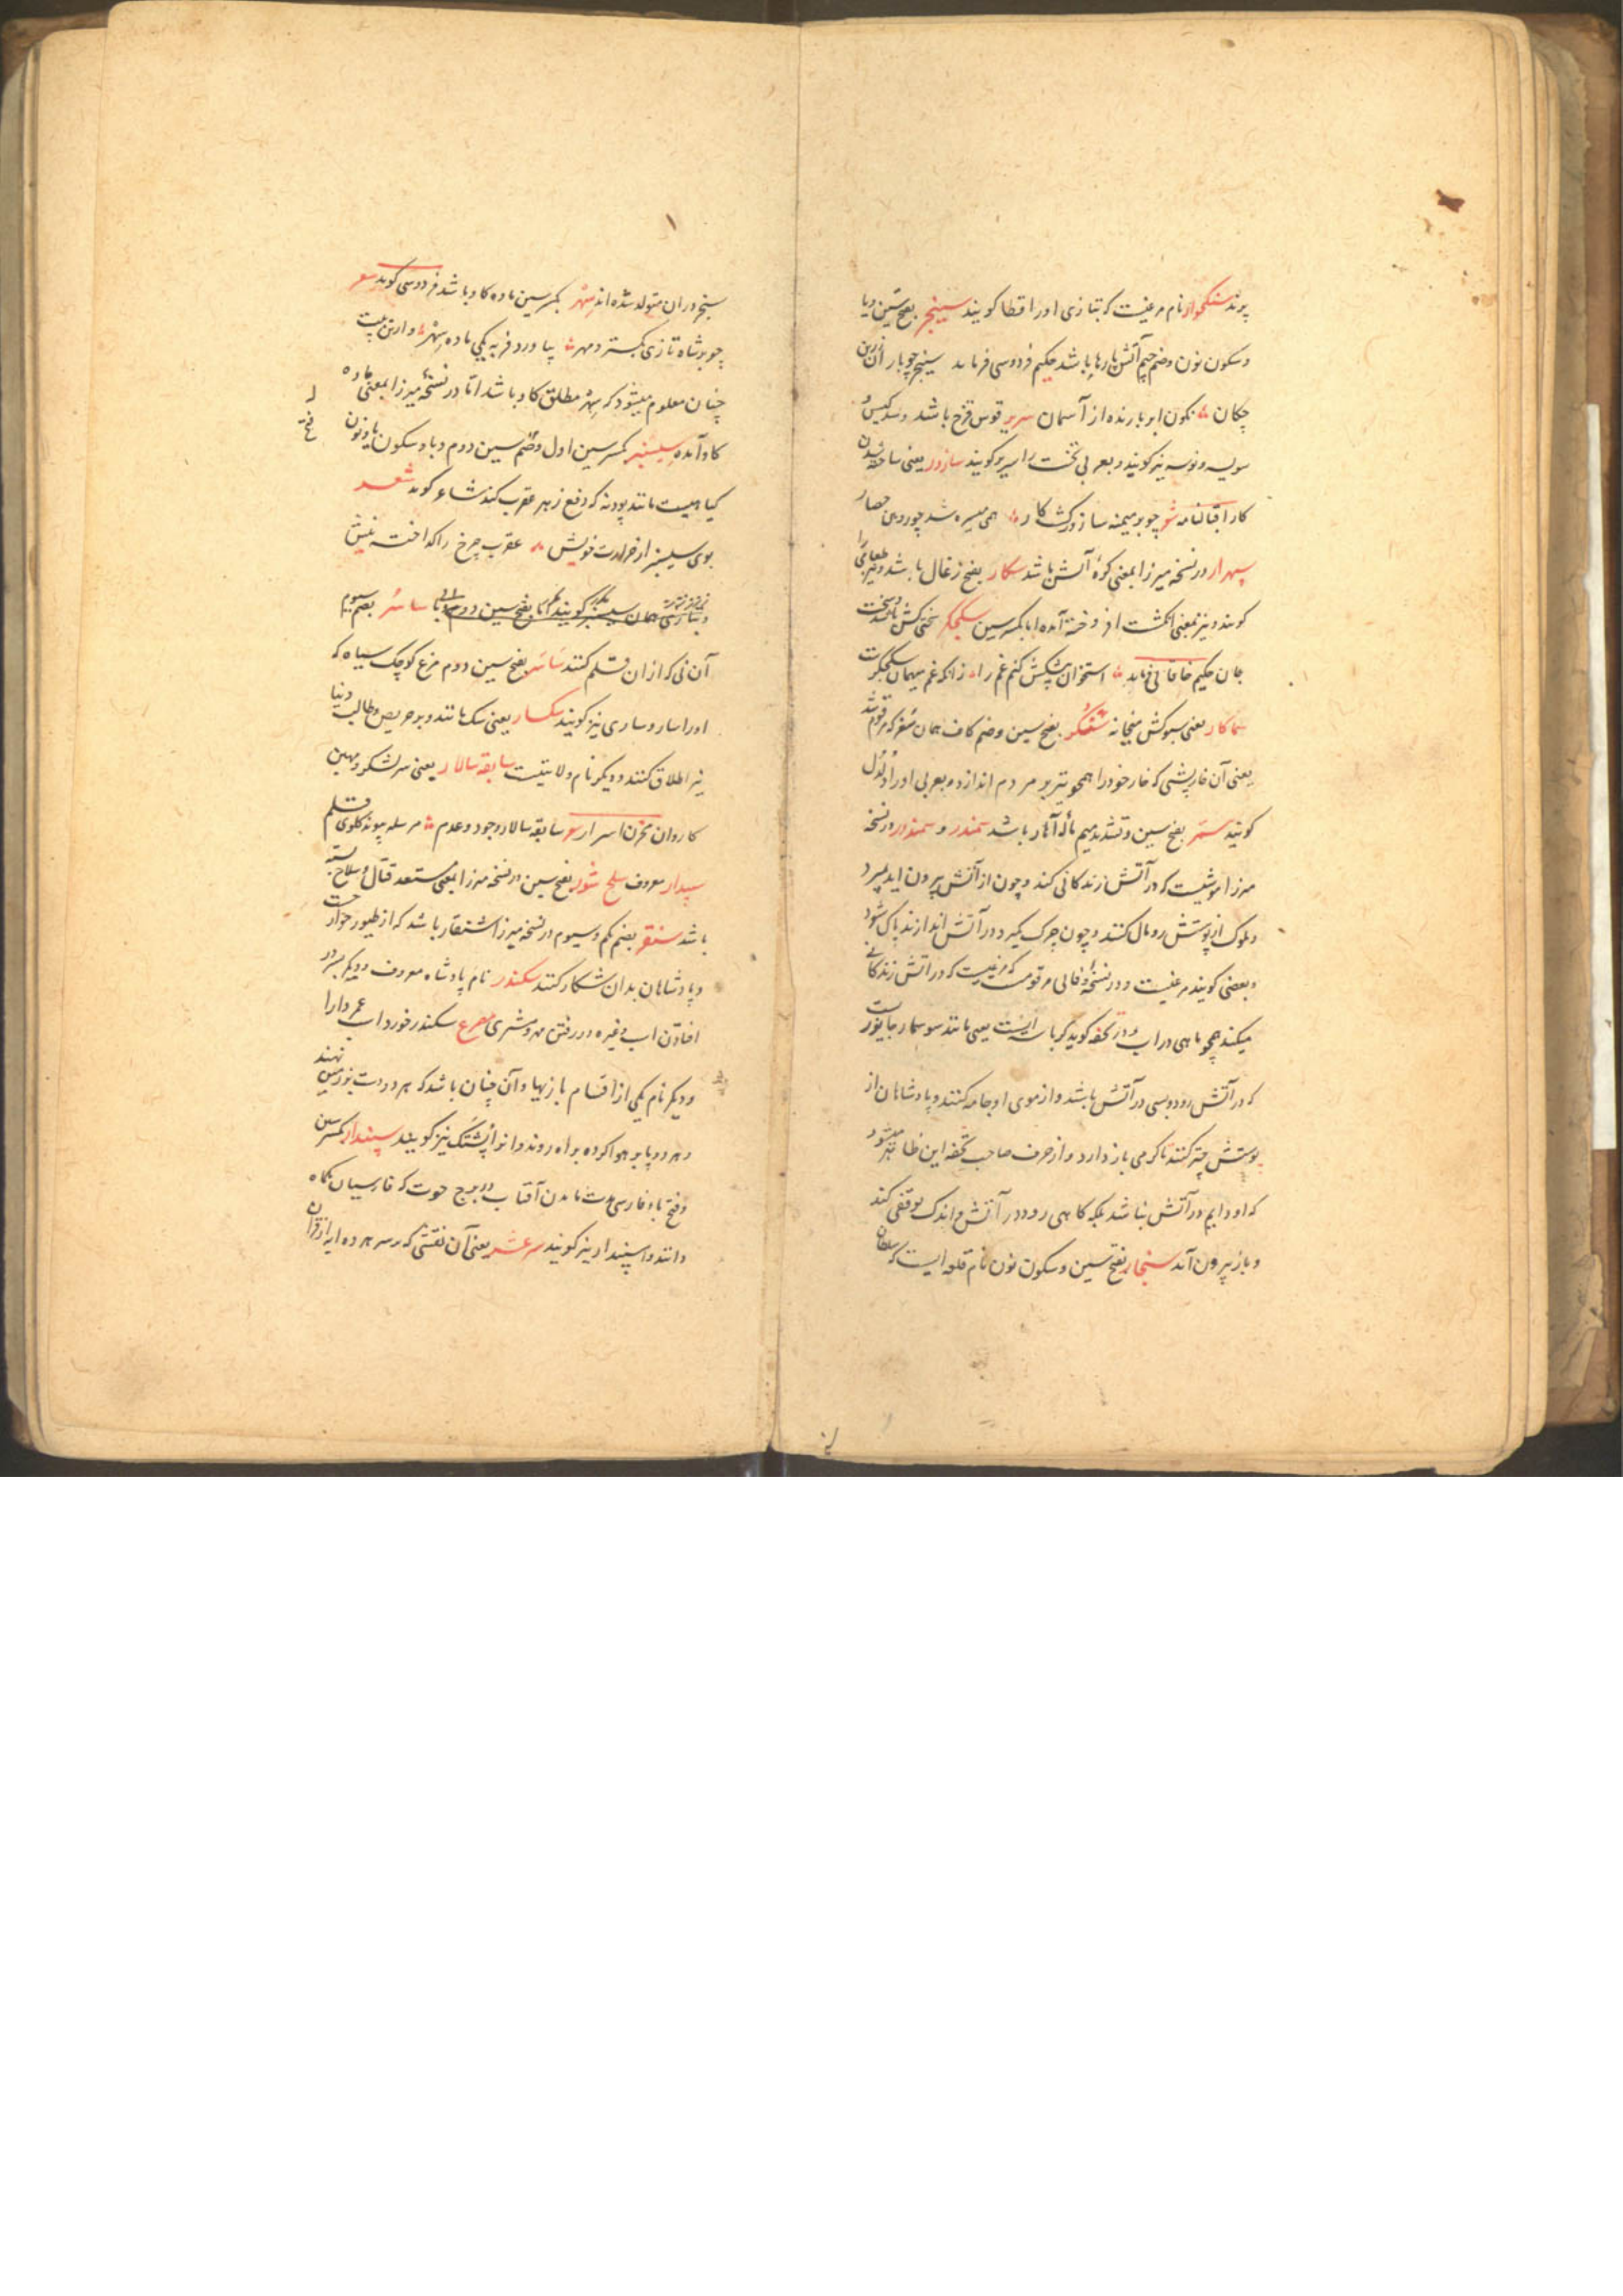 پوند سنگخوار نام مرغیست که بتازی او را قطا گویند سینجر بفتح سین و یا
و سکون نون و ضم جیم آتش پارها باشد حکیم فردوسی فرماید سینجر چو بار
چکان نکون ابر بارنده از آسمان سریر قوس قزح باشد و
سویسه و نوسه نیز کویند و بعربی تخت را سریر کویند سازور یعنی ساخته شدن
کار اقبالنامه شو چو بر میمنه سازور کشت کار همی میسره شد چو رویین حصار
سپهدار در نسخه میرزا بمعنی کوره آتش باشد سکار بفتح زغال باشد و
کویند و نیز بمعنی انکشت افروخته آمده اما بکسر سین سکجکر سختی کش
جان حکیم خاقانی فرماید استخوان پیشکش کنم غم را زانکه غم میهمان سکجکرست
سماکار یعنی سبوکش میخانه سفکر بفتح سین و ضم کاف همان سغر که مرقوم شد
یعنی آن خارپشتی که خار خود را همچو تیر بر مردم اندازد و بعربی او را دلدل
کویند سمر بفتح سین و تشدید میم ماله آهار باشد سمندر و سمندور در نسخه
میرزا موشیست که در آتش زندکانی کند و چون از آتش بیرون اید بمیرد
و ملوک از پوستش رومال کنند و چون چرک کیرد در آتش اندازند پاک شود
و بعضی کویند مرغیست و در نسخه وفائی مرقومست که مرغیست که در اتش زندکانی
میکند همچو ماهی در اب و در تحفه کوید کرباسه ایست یعنی مانند سوسمار جانوریست
که در آتش رود و بسی در آتش باشد و از موی او جامه کنند و پادشاهان از
پوستش چتر کنند تا کرمی باز دارد و از حرف صاحب تحفه این ظاهر میشود
که او دایم در آتش نباشد بلکه کاهی رود در آتش و اندک توقفی کند
و باز بیرون آید سنجار بفتح سین و سکون نون نام قلعه ایست که سلطان
سنجر در ان متولد شده اند سهر بکسر سین ماده کاو باشد فردوسی کوید شعر
چو بر شاه تازی بکسترد مهر بیاورد فربه یکی ماده سهر و از این بیت
چنان معلوم میشود که سهر مطلق کاو باشد اما در نسخه میرزا بمعنی ماده
کاو آمده سیسنبر بکسر سین اول و ضم سین دوم و با و سکون یا و نون
کیاهیست مانند پودنه که دفع زهر عقرب کند شاعر کوید شعر
بوی سیسنبر از حرارت خویش عقرب چرخ را کداخته نیش
ساسر بضم سیوم
آن نی که از ان قلم کنند ساسر بفتح سین دوم مرغ کوچک سیاه که
او را سار و ساری نیز کویند سکسار یعنی سک مانند و بر حریص و طالب دنیا
نیز اطلاق کنند و دیکر نام ولایتیست سابقه سالار یعنی سرلشکر و مهین
کاروان مخزن اسرار شو سابقه سالار وجود و عدم مرسله پیوند کلوی قلم
سپیدار معروف سلح شور بفتح سین در نسخه میرزا بمعنی مستعد قتال و سلاح بسته
باشد سنقر بضم یکم و سیوم در نسخه میرزا شنقار باشد که از طیور
و پادشاهان بدان شکار کنند سکندر نام پادشاه معروف و دیکر بسر در
افتادن اسب و غیره در رفتن مهر و مشتری مصرع سکندر خورد اسب عمر دارا
و دیکر نام یکی از اقسام بازیها و آن چنان باشد که هر دو دست بزمین نهند
و هر دو پا بر هوا کرده براه روند و انرا پشتک نیز کویند سپندار بکسر سین
و فتح با و فارسی مدت ماندن آفتاب در برج حوت که فارسیان نکاه
دانند و اسپندار نیز کویند سرعشر یعنی آن نقشی که بر سر هر ده آیه از قرآن